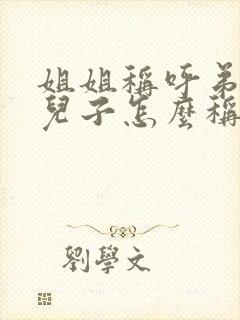 姐姐稱呼弟
兒子怎麼稱
劉學文